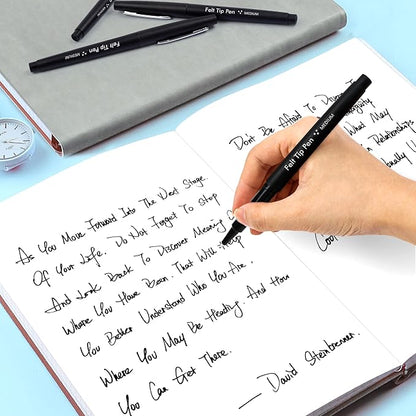 Felt Tip Pen MEDIUM
Felt Tip Pen MEDIUM
Felt Tip Pen MEDIUM
As You Move Forward Into The Next Stage
Of Your Life. Do Not Forget To Stop
And Look Back To Discover Meaning
Where You Have Been That Will Help
You Better Understand Who You Are.
Where You May Be Heading. And How
You Can Get There.
— David Steinbrenner.
Don't Be Afraid To Discover
What May
Relationships